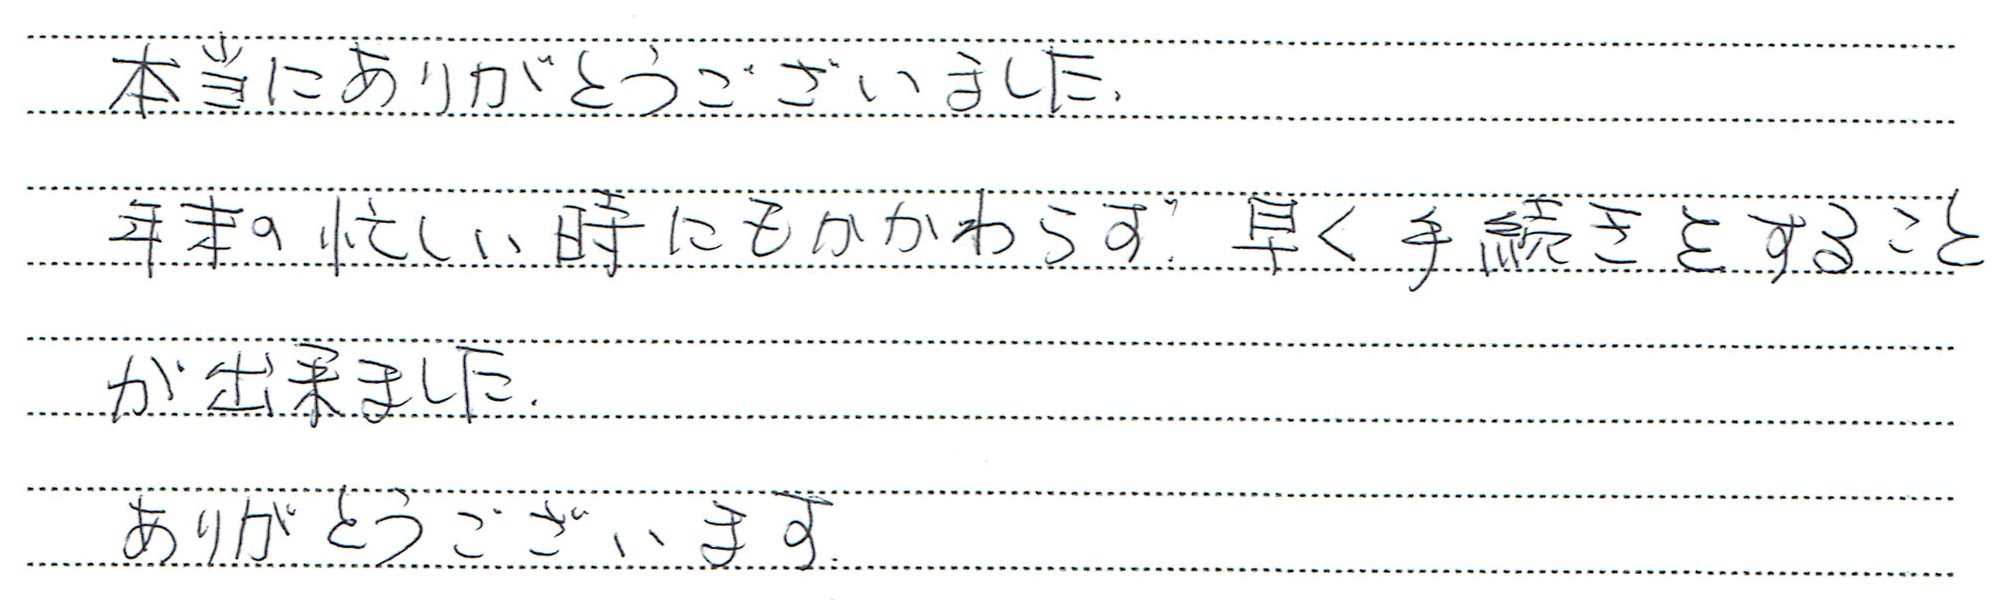 本当にありがとうございました.
年末の忙しい時にもかかわらず. 早く手続きをすること
が出来ました.
ありがとうございます.